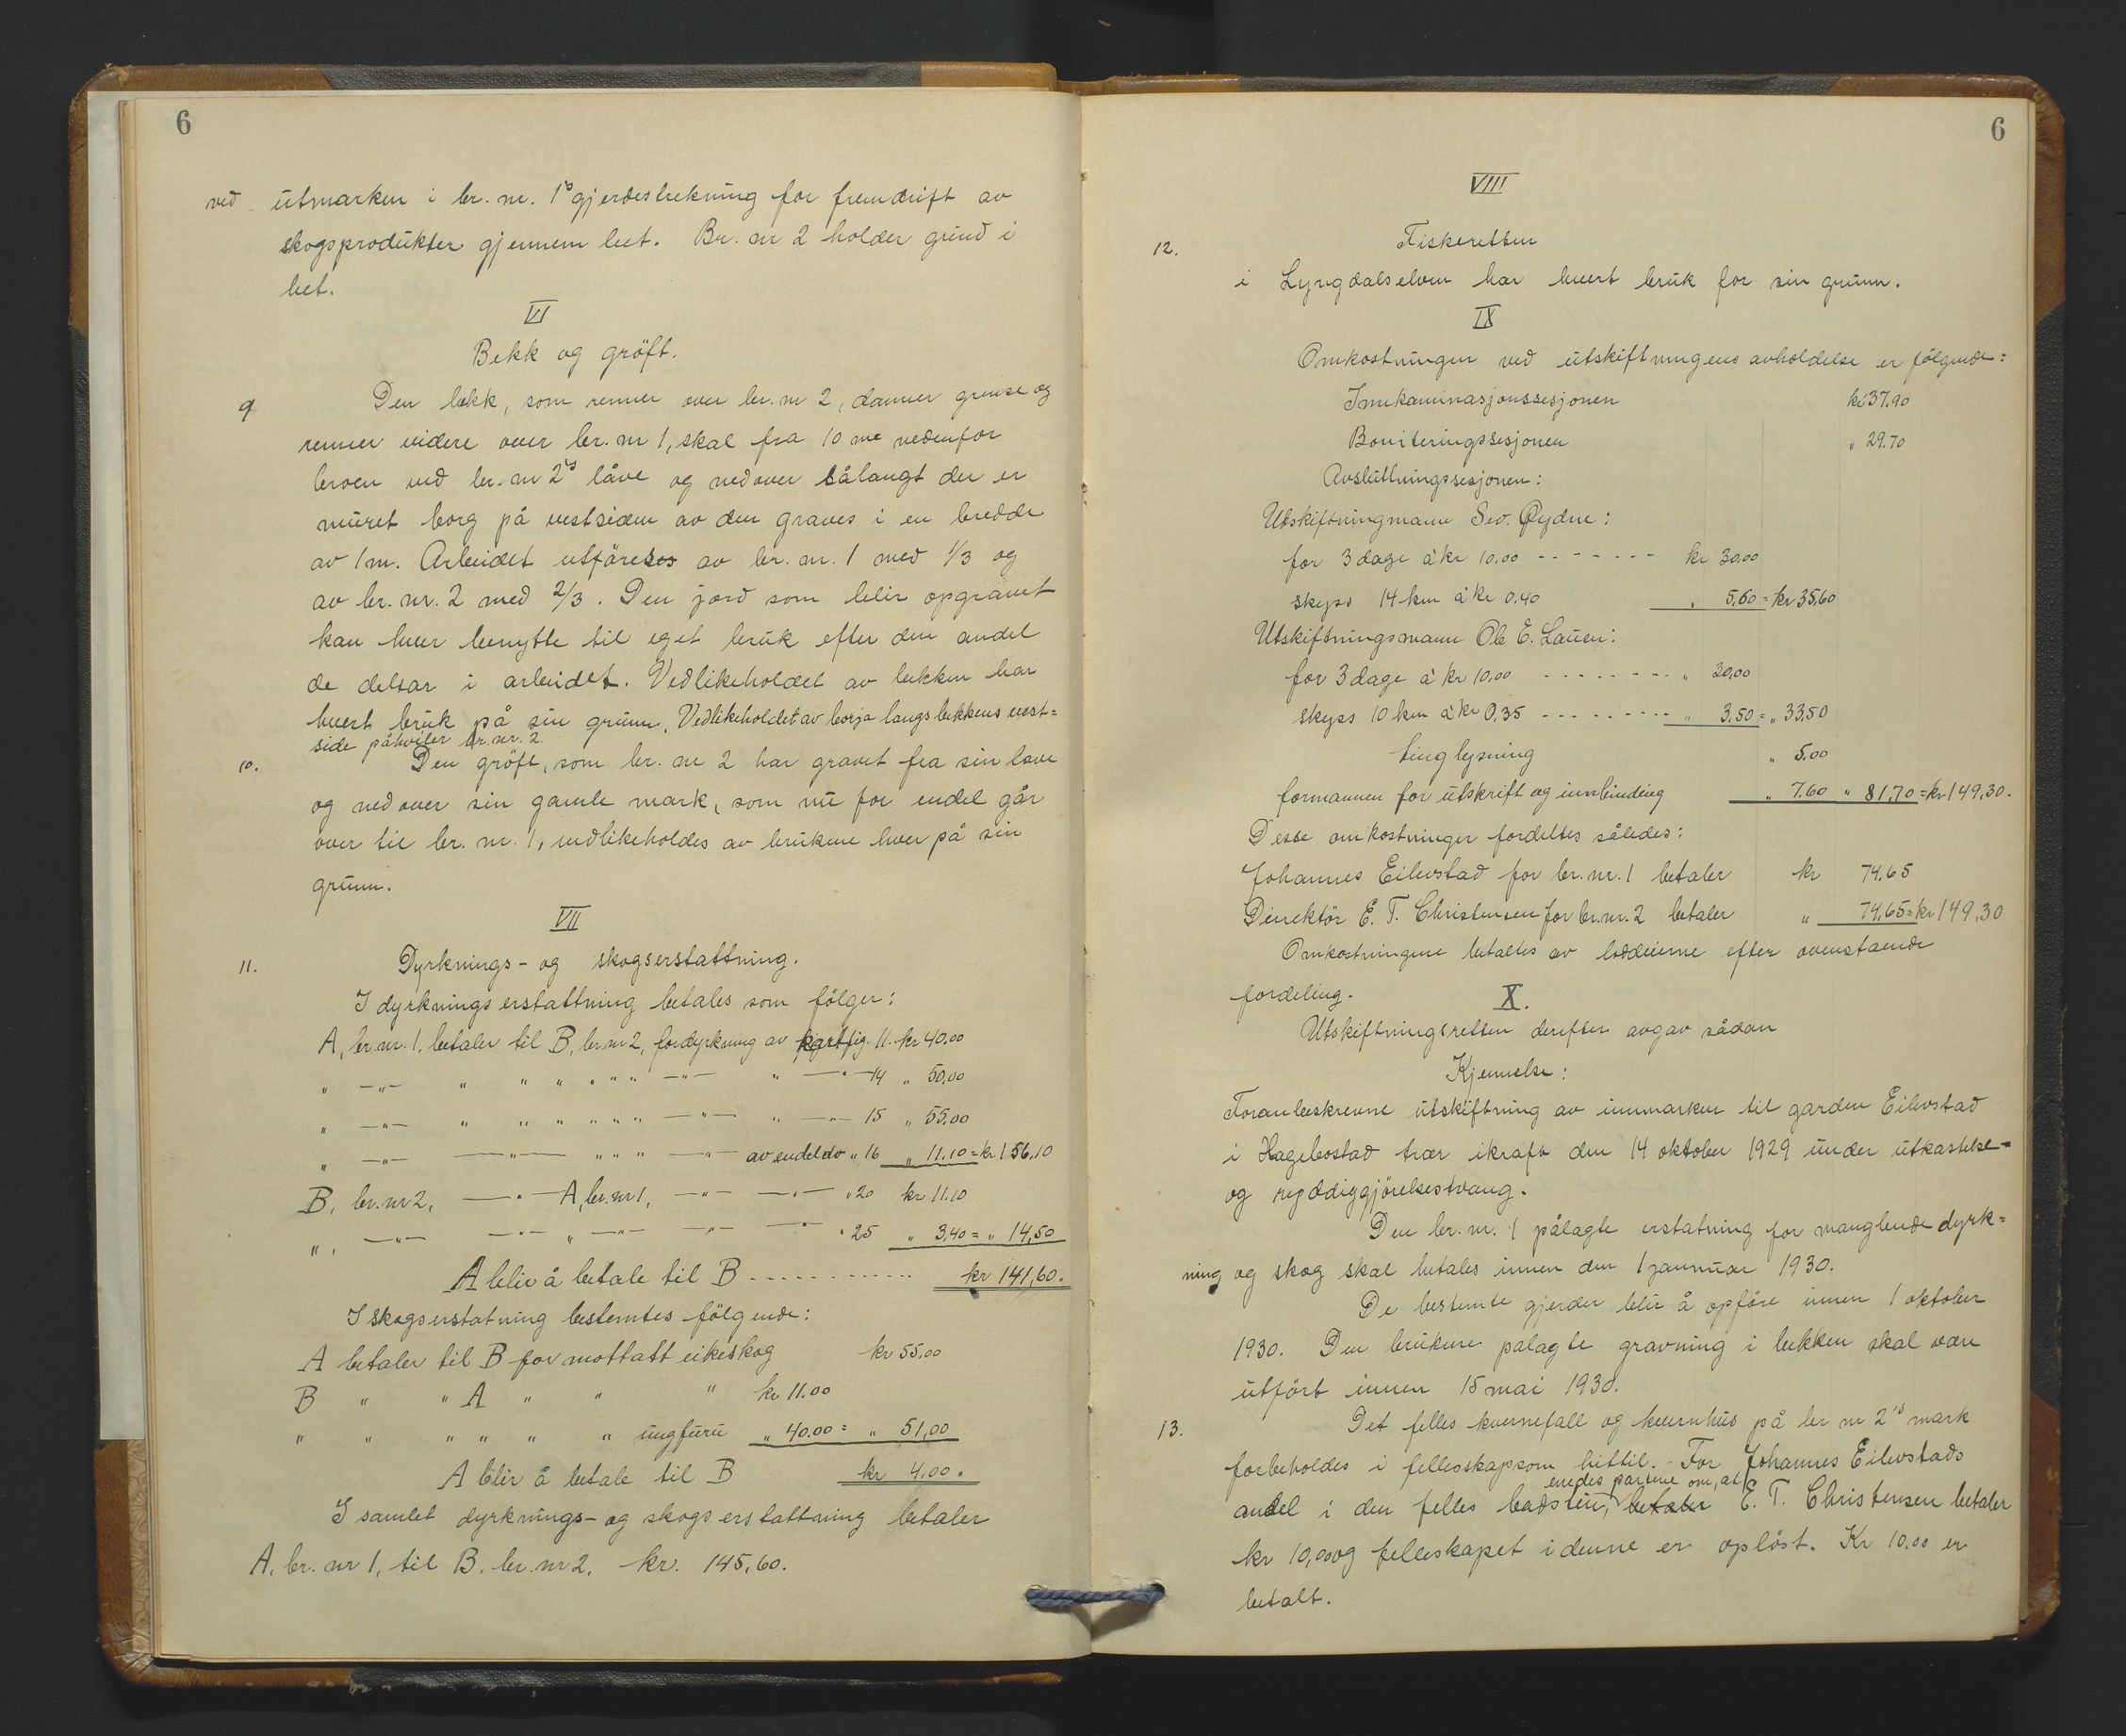 6
ved utmarken i br. nr. 1's gjerdestrekning for fremdrift av
skogsprodukter gjennem leet. Br. nr 2 holder grind i
leet.
VI
Bekk og gröft.
9 Den bekk, som renner over br. nr 2, danner grense og
renner videre over br. nr 1, skal fra 10 me nedenfor
broen ved br. nr 2's låve og nedover sålangt der er
muret borg på vestsiden av den graves i en bredde
av 1 m. Arbeidet utföres av br. nr. 1 med 1/3 og
av br. nr. 2 med 2/3. Den jord som blir opgravet
kan hver benytte til eget bruk efter den andel
de deltar i arbeidet. Vedlikeholdet av bekken har
hvert bruk på sin grunn. Vedlikeholdet av borja langs bekkens vest=
side påhviler br. nr. 2.
10. Den gröft, som br. nr 2 har gravet fra sin lave
og nedover sin gamle mark, som nu for endel går
over til br. nr. 1, vedlikeholdes av brukene hver på sin
grunn.
VII
11. Dyrknings- og skogserstattning.
I dyrkningserstattning betales som fölger:
A, br. nr. 1, betaler til B, br. nr 2, for dyrkning av kartfig. 11. kr 40.00
" —"— " " " " " " —"— " —"— 14 " 50.00
" —"— " " " " " " —"— " —"— 15 " 55.00
" —"— —"— " " " —"— av endel do " 16 " 11.10 = kr 156,10
B, br. nr 2, —"— A, br. nr 1, —"— —"— " 20 kr 11.10
", —"— —"— " —"— —"— —"— " 25 " 3,40 = " 14,50
A blir å betale til B - - - - - - - - - - - - kr 141,60.
I skogserstatning bestemtes fölgende:
A betaler til B for mottatt eikeskog kr 55,00
B " " A " " " kr 11.00
" " " " " " ungfuru " 40.00 = " 51,00
A blir å betale til B kr 4,00.
I samlet dyrknings- og skogserstattning betaler
A, br. nr 1, til B, br. nr 2, kr. 145,60.
6
VIII
12. Fiskeretten
i Lyngdalselven har hvert bruk for sin grunn.
IX
Omkostningen ved utskiftningens avholdelse er fölgende:
Innkaminasjonssesjonen kr 37.90
Boniteringssesjonen " 29.70
Avsluttningssesjonen:
Utskiftningmann Sev. Øydne:
for 3 dage à kr 10.00 - - - - - - - kr 30.00
skyss 14 km à kr 0.40 " 5,60 = kr 35,60
Utskiftningsmann Ole E. Lauen:
for 3 dage à kr 10.00 - - - - - - - - " 30,00
skyss 10 km à kr 0.35 - - - - - - - - - " 3,50 = " 33,50
tinglysning " 5.00
formannen for utskrift og innbinding " 7.60 " 81,70 = kr 149,30.
Desse omkostninger fordeltes således:
Johannes Eilevstad for br. nr. 1 betaler kr 74,65
Direktör E. T. Christensen for br. nr. 2 betaler " 74,65 = kr 149,30
Omkostningene betaltes av loddeierne efter ovenstaende
fordeling.
X.
Utskiftningsretten derefter avgav sådan
Kjennelse:
Foranbeskrevne utskiftning av innmarken til garden Eilevstad
i Hægebostad trær ikraft den 14 oktober 1929 under utkastelse-
og ryddiggjörelsestvang.
Den br. nr. 1 pålagte erstatning for manglende dyrk=
ning og skog skal betales innen den 1 jannuar 1930.
De bestemte gjerder blir å opföre innen 1 oktober
1930. Den brukene palagte gravning i bekken skal være
utfört innen 15 mai 1930.
13. Det felles kvernefall og kvernhus på br nr 2's mark
forbeholdes i fellesskap som hittil. For Johannes Eilevstads
enedes partene om, at
andel i den felles badstue, betaler E. T. Christensen betaler
kr 10,00 og felleskapet i denne er oplöst. Kr 10.00 er
betalt.